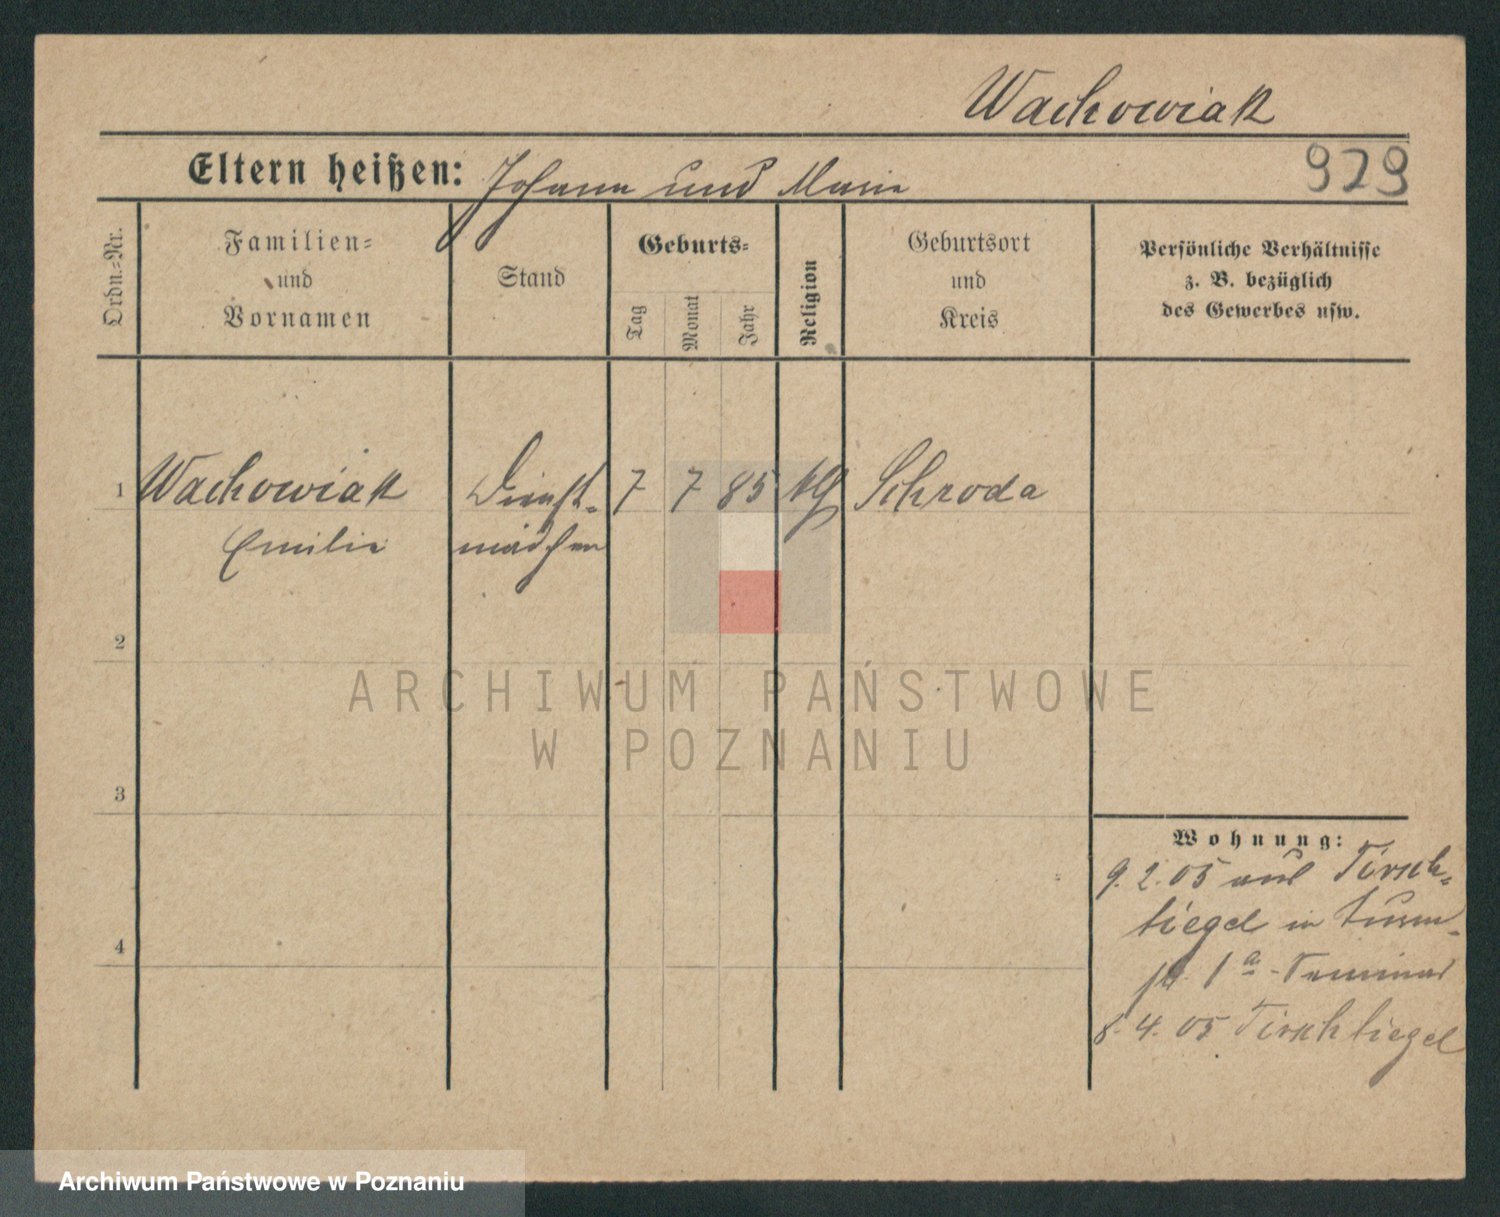 Wachowiak
929
Eltern heißen: Johann und Marie
Ordn.-Nr.
Familien-
und
Vornamen
Stand
Geburts-
Tag
Monat
Jahr
Religion
Geburtsort
und
Kreis
Persönliche Verhältnisse
z. B. bezüglich
des Gewerbes usw.
1 Wachowiak Dienst- 7 7 85 kg Schroda
Emilie mädchen
2
3
4
Wohnung:
9.2.05 aus Tirsch-
tiegel in
1a - Seminar
8.4.05 Tirschtiegel
ARCHIWUM PAŃSTWOWE
W POZNANIU
Archiwum Państwowe w Poznaniu